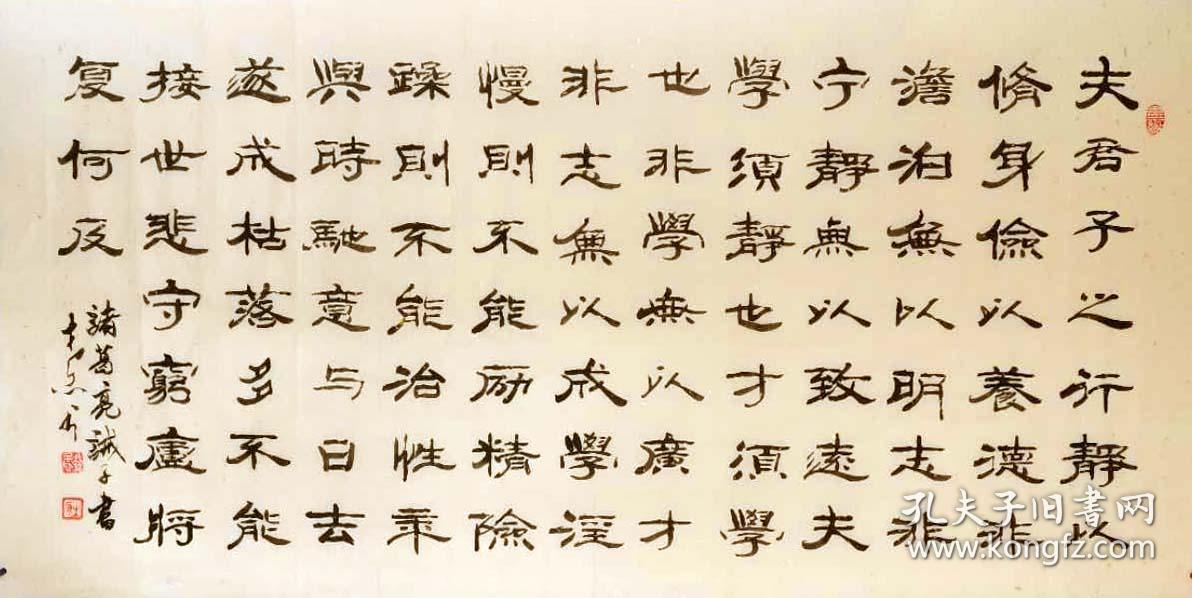 夫君子之行靜以
脩身儉以養德非
澹泊無以明志非
宁靜無以致遠夫
學須靜也才須學
也非學無以廣才
非志無以成學淫
慢則不能励精險
躁則不能治性年
與時馳意与日去
遂成枯落多不能
接世悲守窮廬將
复何及
諸葛亮誡子書
孔夫子旧书网
www.kongfz.com